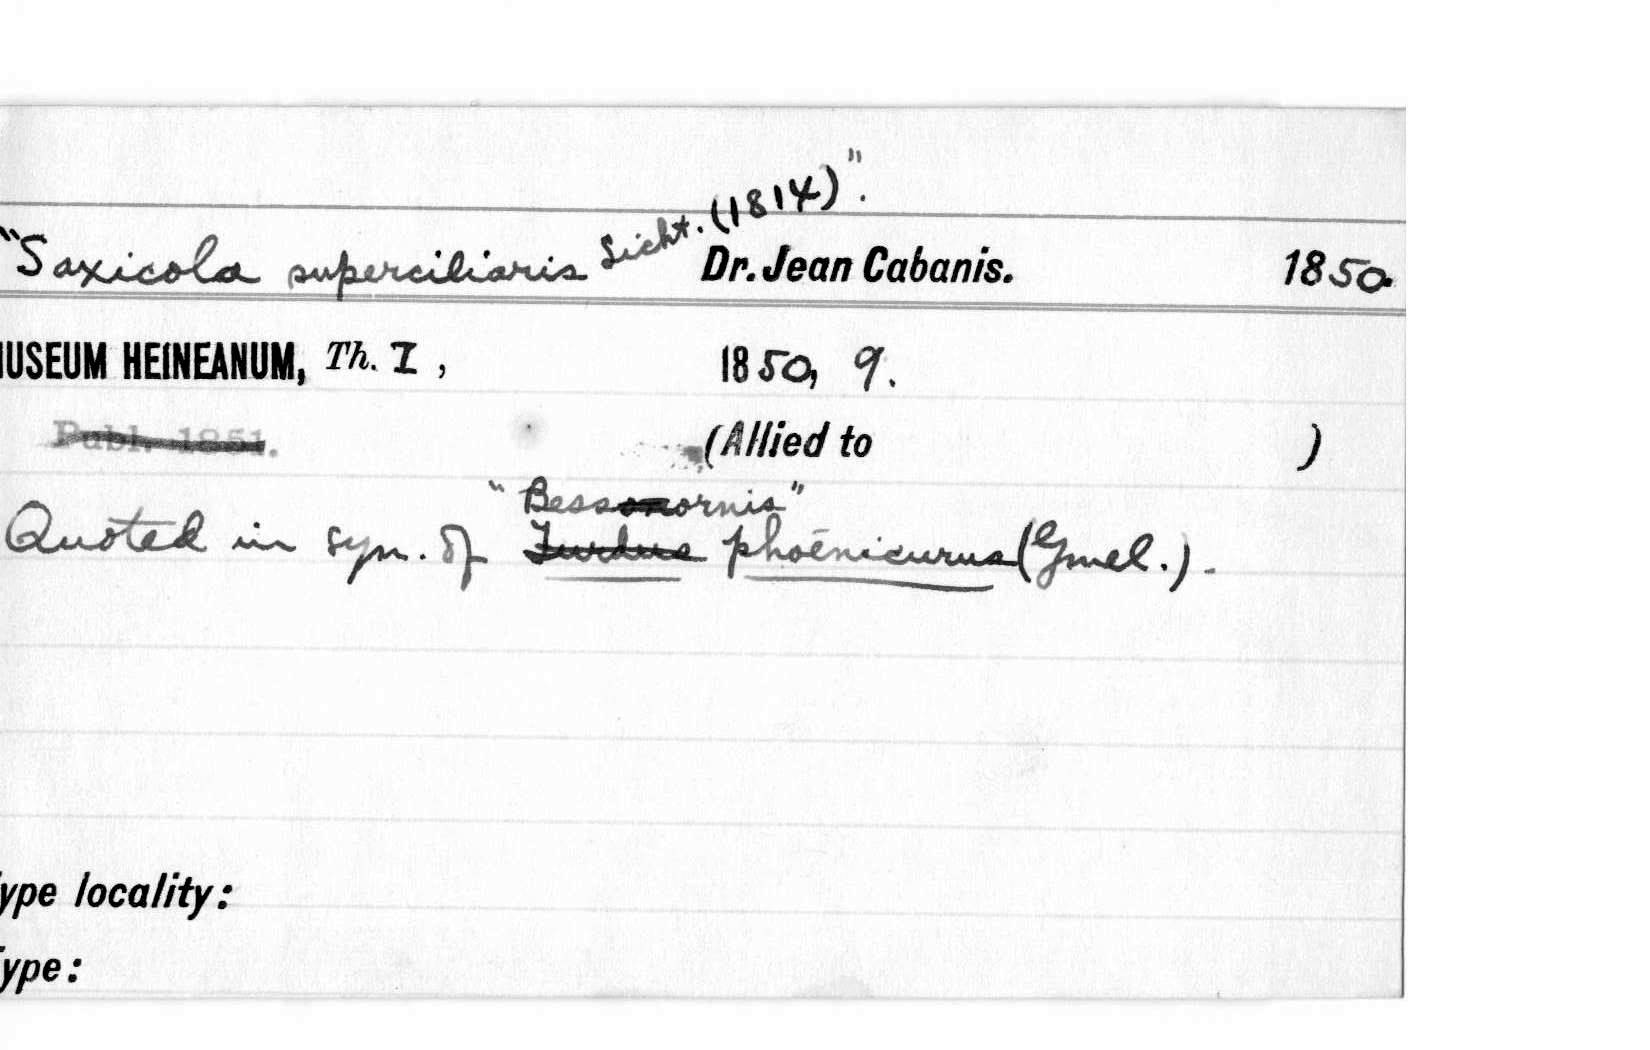 "Saxicola superciliaris Licht. (1814)". Dr. Jean Cabanis. 1850.
MUSEUM HEINEANUM, Th. I, 1850, 9.
Publ. 1851.
(Allied to )
"Bessonornis"
Quoted in syn. of Turdus phoenicurus (Gmel.).
ype locality:
ype: